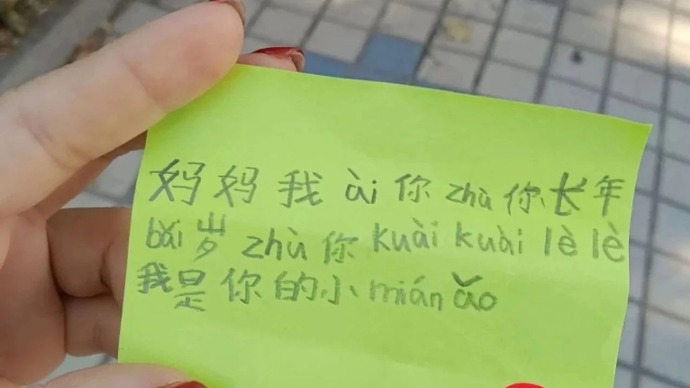 妈妈我ài你zhù你长年
bǎi岁zhù你kuài kuài lè lè
我是你的小mián ǎo